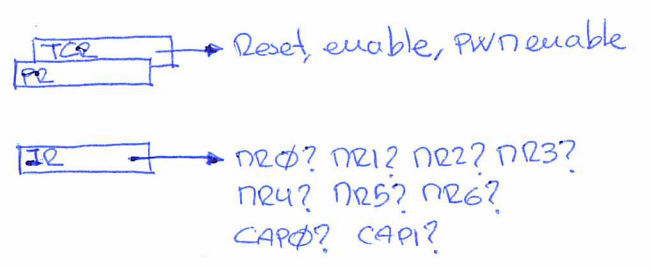 TCR Reset, enable, PWM enable
PR
IR MRØ? MR1? MR2? MR3?
MR4? MR5? MR6?
CAPØ? CAP1?